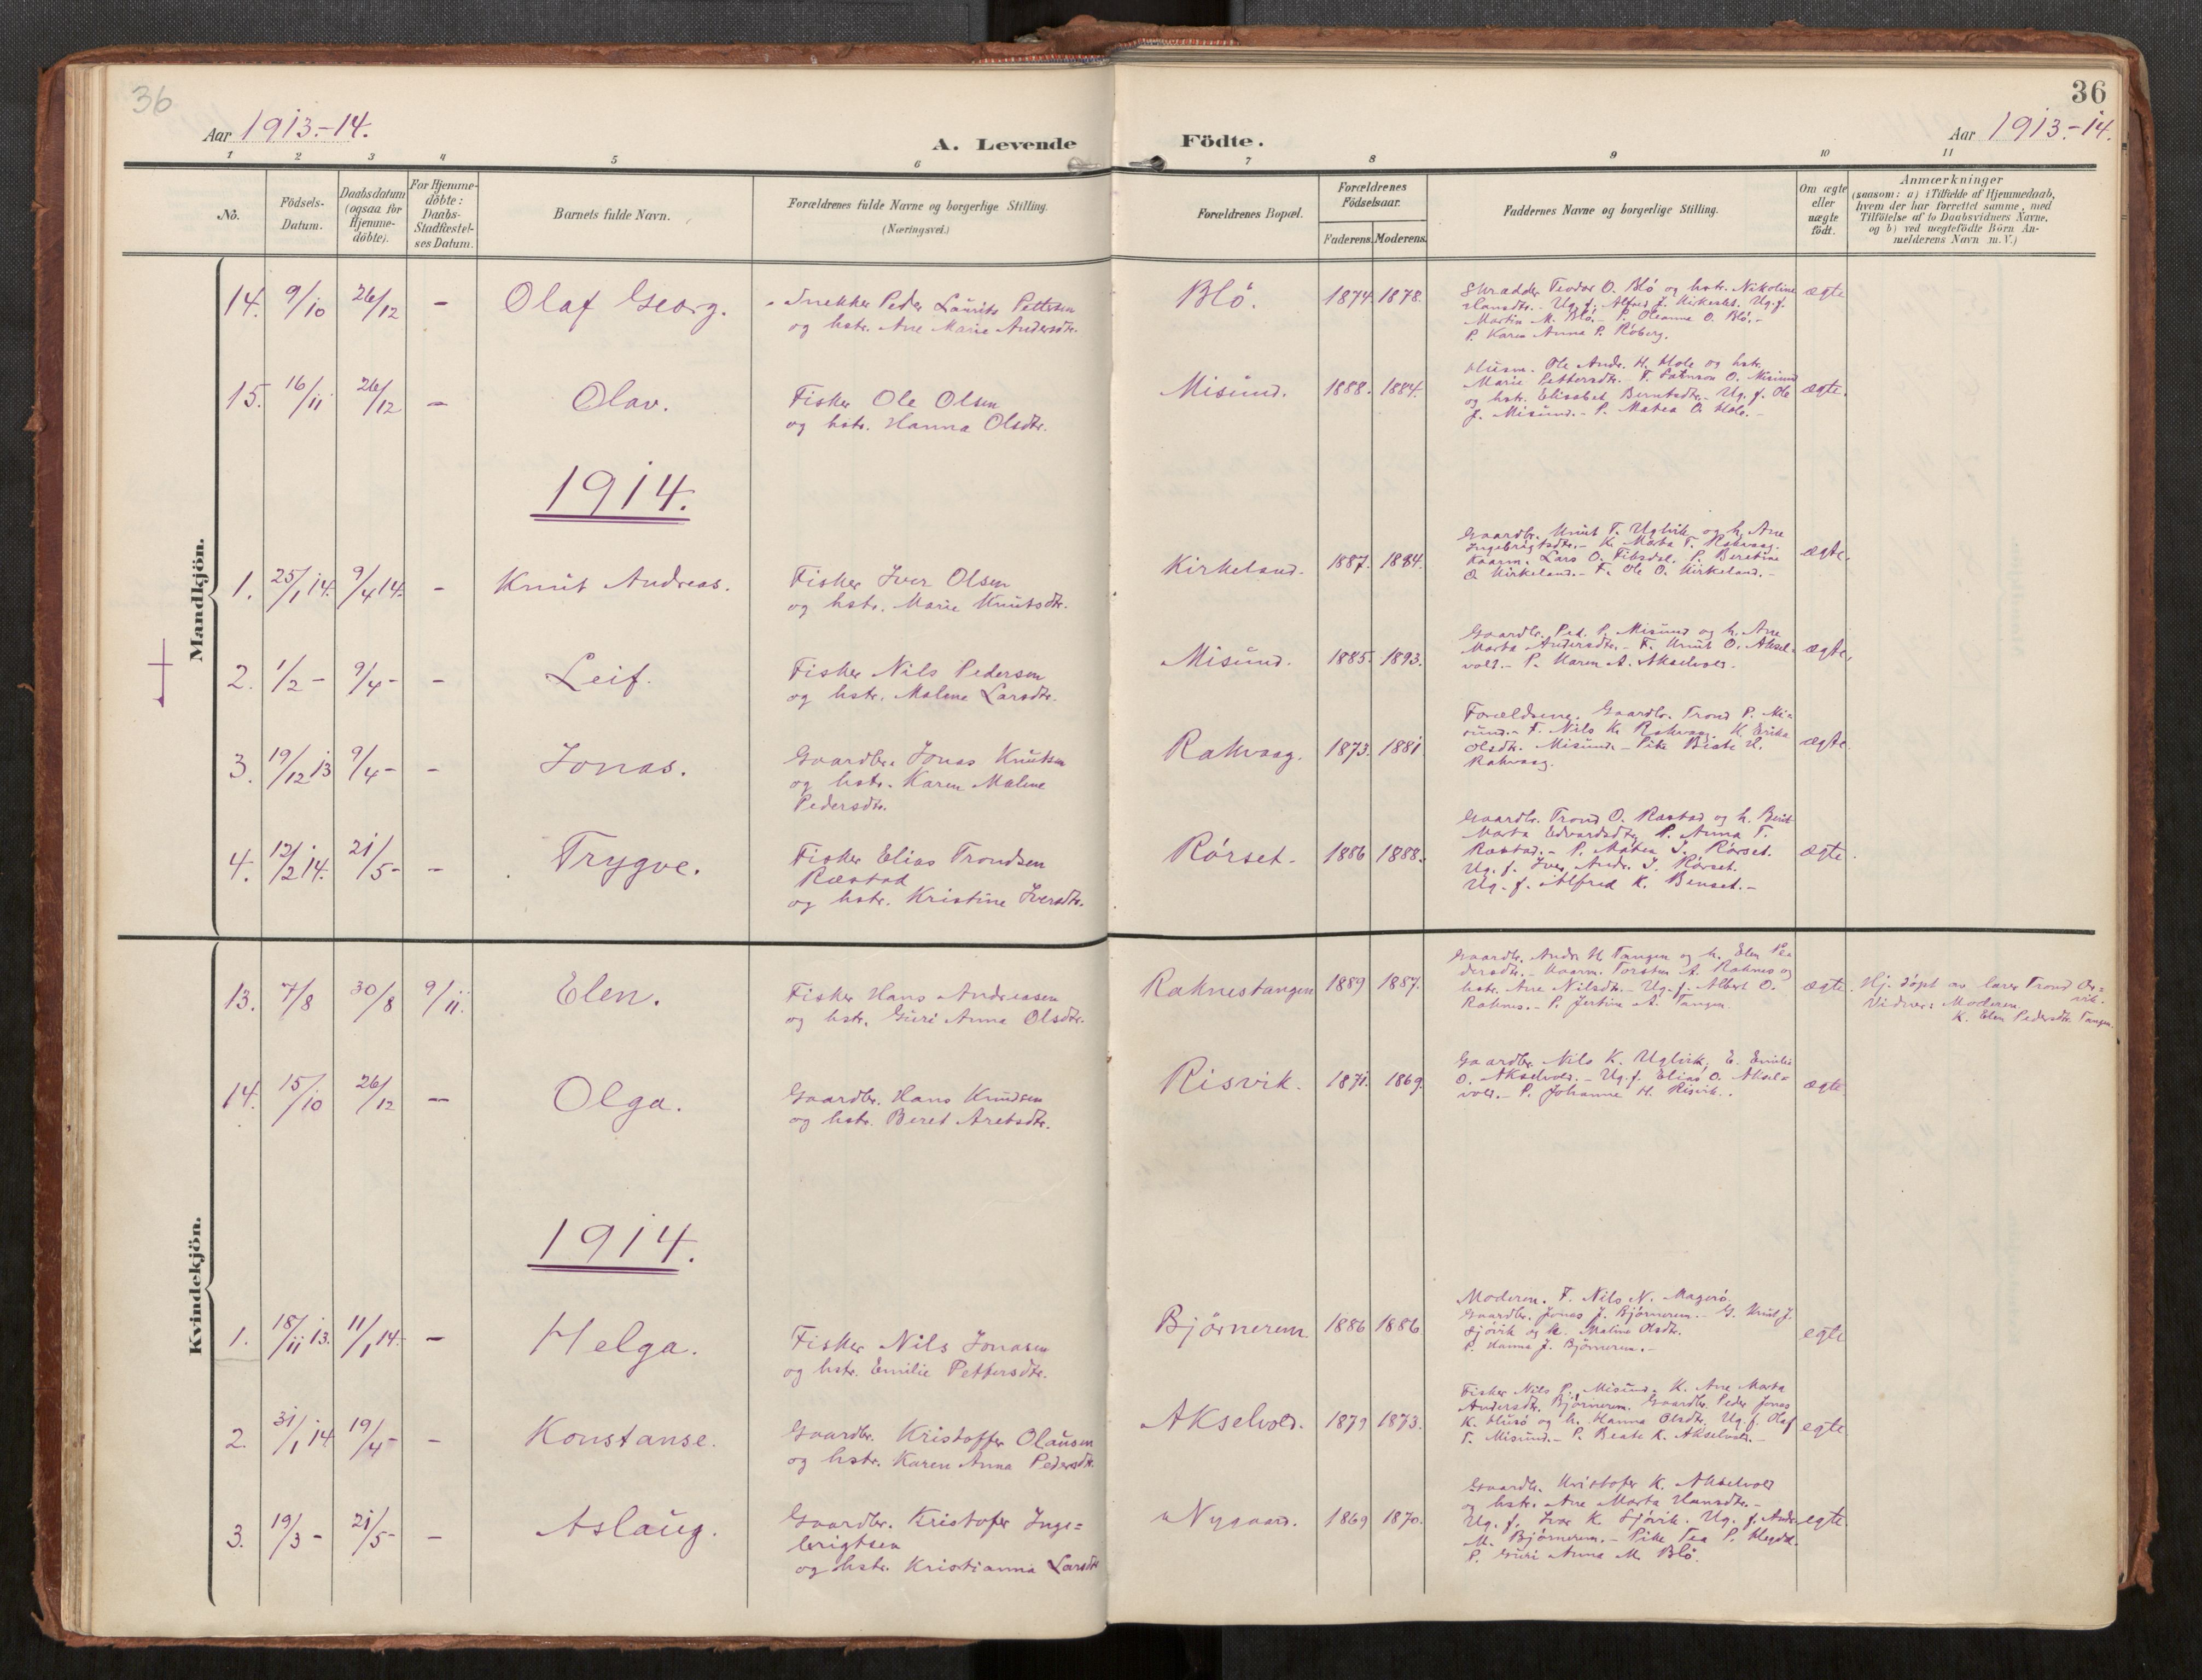 36
36
Aar 1913.-14.
A. Levende Födte.
Aar 1913.-14.
1 2 3 4 5 6 7 8 9 10 11
No.
Födsels-Datum.
Daabsdatum (ogsaa for Hjemme-döbte).
For Hjemme-döbte: Daabs-Stadfæstel-ses Datum.
Barnets fulde Navn.
Forældrenes fulde Navne og borgerlige Stilling.
(Næringsvei.)
Forældrenes Bopæl.
Forældrenes Födselsaar.
Faderens. Moderens.
Faddernes Navne og borgerlige Stilling.
Om ægte eller uægte födt.
Anmærkninger
(saasom: a) i Tilfælde af Hjemmedaab,
hvem der har forrettet samme, med
Tilföielse af to Daabsvidners Navne,
og b) ved uægtefödte Börn An-
melderens Navn m. V.)
Mandkjön.
14. 9/10 26/12 - Olaf Georg.
Snekker Peder Laurits Pettersen
og hstr. Ane Marie Andersdtr.
Blö. 1874. 1878.
Skrædder Teodor O. Blö og hstr. Nikoline
Hansdtr. - Ug. f. Alfred J. Kirkesl. Ug. f.
Martin M. Blö. - P. Oleanna O. Blö. -
P. Karen Anna P. Röberg.
ægte
15. 16/11 26/12 - Olav.
Fisker Ole Olsen
og hstr. Hanna Olsdtr.
Misund. 1888. 1884.
Husm. Ole Andr. H. Hole og hstr.
Marie Pettersdtr. F. O. Misund
og hstr. Elisabet Berntsdtr. - Ug. f. Ole
J. Misund. - P. Matea O. Hole. -
ægte.
1914.
1. 25/1 14. 9/4 14. - Knut Andreas.
Fisker Iver Olsen
og hstr. Marie Knutsdtr.
Kirkeland. 1887. 1884.
Gaardbr. Knut T. Uglvik og h. Ane
Ingebrigtsdtr. - K. Marta T. Rakvaag.
Kaarm. Lars O. P. Beretine
O. Kirkeland. - F. Ole O. Kirkeland. -
ægte.
2. 1/2 - 9/4 - - Leif.
Fisker Nils Pedersen
og hstr. Malene Larsdtr.
Misund. 1885. 1893.
Gaardbr. Ped. P. Misund og h. Ane
Marta Andersdtr. - F. Knut O. Aksel-
vold. - P. Karen A. Akselvold.
ægte.
3. 19/12 13 9/4 - - Jonas.
Gaardbr. Jonas Knutsen
og hstr. Karen Malene
Pedersdtr.
Rakvaag. 1873. 1881.
Forældrene. Gaardbr. Trond P. Mi-
sund. - F. Nils K. Rakvaag. K. Erika
Olsdtr. Misund. - Pike Beate K.
Rakvaag.
ægte.
4. 12/2 14. 21/5 - - Trygve.
Fisker Elias Trondsen
Ræstad
og hstr. Kristine Iversdtr.
Rörset. 1886 1888.
Gaardbr. Trond O. Ræstad og h. Berit
Marta Edvardsdtr. P. Anna T.
Ræstad. - P. Matea I. Rörset.
Ug. f. Iver Andr. I. Rörset.
Ug. f. Alfred K. Benset. -
ægte.
Kvindekjön.
13. 7/8 30/8 9/11. Elen.
Fisker Hans Andreasen
og hstr. Guri Anna Olsdtr.
Raknestangen 1889 1887.
Gaardbr. Andr. H. Tangen og h. Elen Pe-
dersdtr. - Kaarm. Torsten A. Raknes og
hstr. Ane Nilsdtr. - Ug. f. Albert O.
Raknes. - P. Jertine A. Tangen.
ægte.
Hj. döpt av lærer Trond Or-
vik.
Vidner: Moderen.
K. Elen Pedersdtr. Tangen.
14. 15/10 26/12 - Olga.
Gaardbr. Hans Knudsen
og hstr. Beret Aretsdtr.
Risvik. 1871. 1869.
Gaardbr. Nils K. Uglvik, E. Emilie
O. Akselvold. - Ug. f. Elias O. Aksel-
vold. - P. Johanne H. Risvik.
ægte.
1914.
1. 18/11 13. 11/1 14. - Helga.
Fisker Nils Jonasen
og hstr. Emilie Pettersdtr.
Björnerem 1886 1886
Moderen. F. Nils N. Magerö.
Gaardbr. Jonas J. Björnerem. - G. Knut J.
Sjövik og h. Maline Olsdtr.
P. Hanna J. Björnerem. -
egte
2. 31/1 14 19/4 - - Konstanse.
Gaardbr. Kristoffer Olausen
og hstr. Karen Anna Pedersdtr.
Akselvold. 1879 1873.
Fisker Nils P. Misund. K. Ane Marta
Andersdtr. Björnerem. Gaardbr. Peder Jonas
K. Husö og h. Hanna Olsdtr. Ug. f. Olaf
T. Misund. - P. Beate K. Akselvold. -
egte.
3. 19/3 - 21/5 - - Aslaug.
Gaardbr. Kristofer Inge-
brigtsen
og hstr. Kristianna Larsdtr
Nygaard. 1869 1870.
Gaardbr. Kristofer K. Akselvold
og hstr. Ane Marta Hansdtr. -
Ug. f. Ivar K. Sjövik. Ug. f. Andr.
M. Björnerem. - Pike Tea P. Hegdal.
P. Guri Anna M. Blö.
egte.